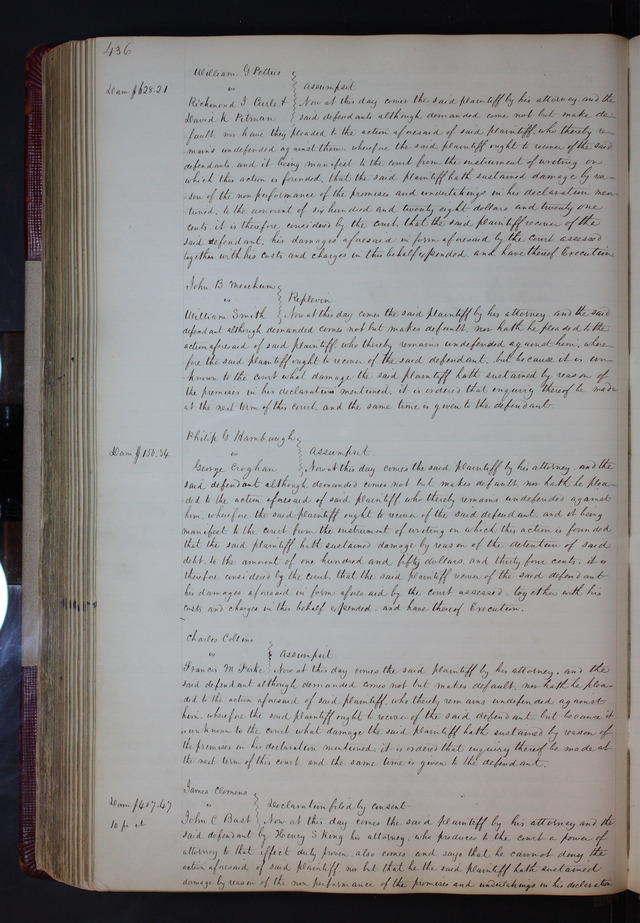 436
William G Pettus
vs Assumpsit
Dam $628.21
Richmond J Curle & Now at this day comes the said plaintiff by his attorney, and the
David K Pitman said defendants although demanded come not but make de-
fault, nor have they pleaded to the action aforesaid of said plaintiff, who thereby re-
mains undefended against them, wherefore the said plaintiff ought to recover of the said
defendants, and it being manifest to the court from the instrument of writing on
which this action is founded, that the said plaintiff hath sustained damage by rea-
son of the non performance of the promises and undertakings in his declaration men-
tioned, to the amount of six hundred and twenty eight dollars and twenty one
cents, it is therefore considered by the court, that the said plaintiff recover of the
said defendant, his damages aforesaid in form aforesaid by the court assessed
together with his costs and charges in this behalf expended, and have thereof Execution
John B
vs Replevin
William Smith Now at this day comes the said plaintiff by his attorney, and the said
defendant although demanded comes not but makes default, nor hath he pleaded to the
action aforesaid of said plaintiff who thereby remains undefended against him, where-
fore the said plaintiff ought to recover of the said defendant, but because it is un-
known to the court what damage the said plaintiff hath sustained by reason of
the premises in his declaration mentioned, it is ordered that enquiry thereof be made
at the next term of this court, and the same time is given to the defendant.
Philip G
Dam $150.34
vs Assumpsit
George Croghan Now at this day comes the said plaintiff by his attorney, and the
said defendant although demanded comes not but makes default, nor hath he plea-
ded to the action aforesaid of said plaintiff who thereby remains undefended against
him, wherefore the said plaintiff ought to recover of the said defendant, and it being
manifest to the court from the instrument of writing on which this action is founded
that the said plaintiff hath sustained damage by reason of the detention of said
debt, to the amount of one hundred and fifty dollars, and thirty four cents, it is
therefore considered by the court, that the said plaintiff recover of the said defendant
his damages aforesaid in form aforesaid by the court assessed, together with his
costs and charges in this behalf expended, and have thereof Execution.
Charles Collins
vs Assumpsit
Francis M Fiske Now at this day comes the said plaintiff by his attorney, and the
said defendant although demanded comes not but makes default, nor hath he plea-
ded to the action aforesaid of said plaintiff, who thereby remains undefended against
him, wherefore the said plaintiff ought to recover of the said defendant, but because it
is unknown to the court what damage the said plaintiff hath sustained by reason of
the premises in his declaration mentioned, it is ordered that enquiry thereof be made at
the next term of this court, and the same time is given to the defendant.
James Clemens
Dam $407.47
vs Declaration filed by consent
10 pr ct
John C Bust Now at this day comes the said plaintiff by his attorney and the
said defendant by Henry S King his attorney, who produces to the court a power of
attorney to that effect duly proven, also comes and says that he cannot deny the
action aforesaid of said plaintiff, nor but that he the said plaintiff hath sustained
damage by reason of the non performance of the promises and undertakings in his declaration